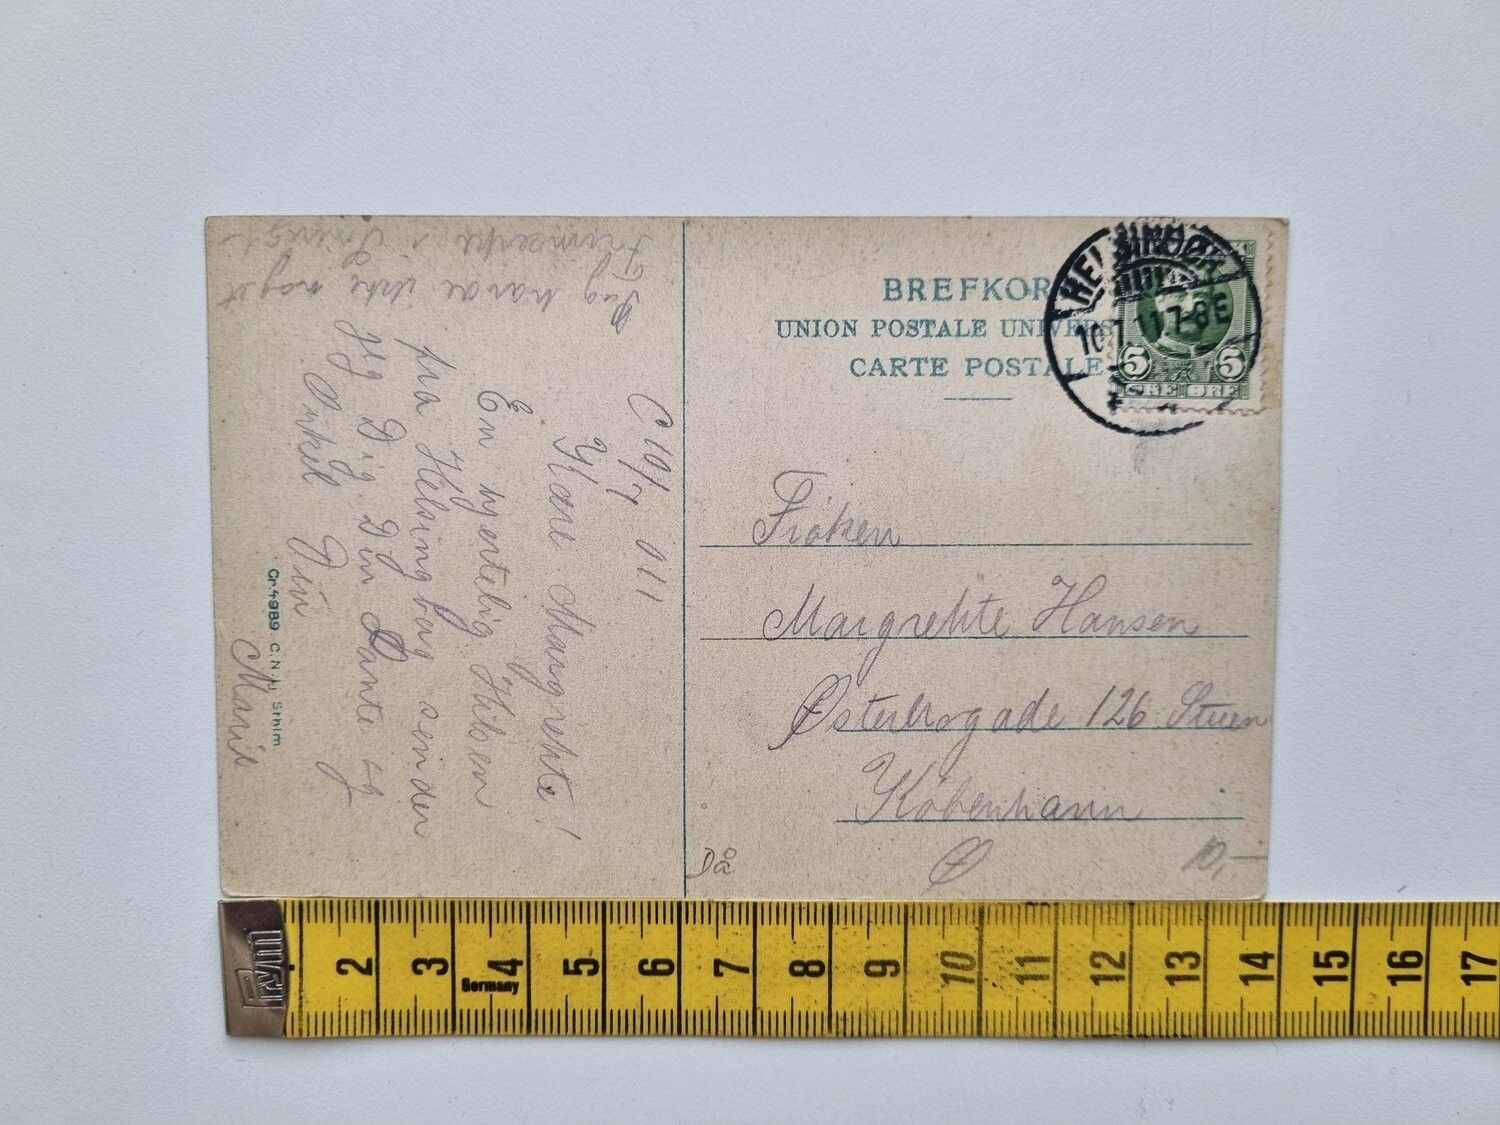 BREFKOR
UNION POSTALE UNIVERS
CARTE POSTALE
HELSINGØR
7-8E
5 5
ØRE ØRE
Frøken
Margrehte Hansen
Østerbrogade 126 Stuen
København
Ø
10,-
Då
C 10/7 011
Kære Margrehte!
En hjertelig Hilsen
fra Helsingborg sender
jeg Dig Din Tante og
Onkel
Marie
Jeg havde ikke noget
Frimærke i Sverige
Cn 4989 C. N:s Lj, Sthlm
2 3 4 5 6 7 8 9 10 11 12 13 14 15 16 17
Germany
Prym